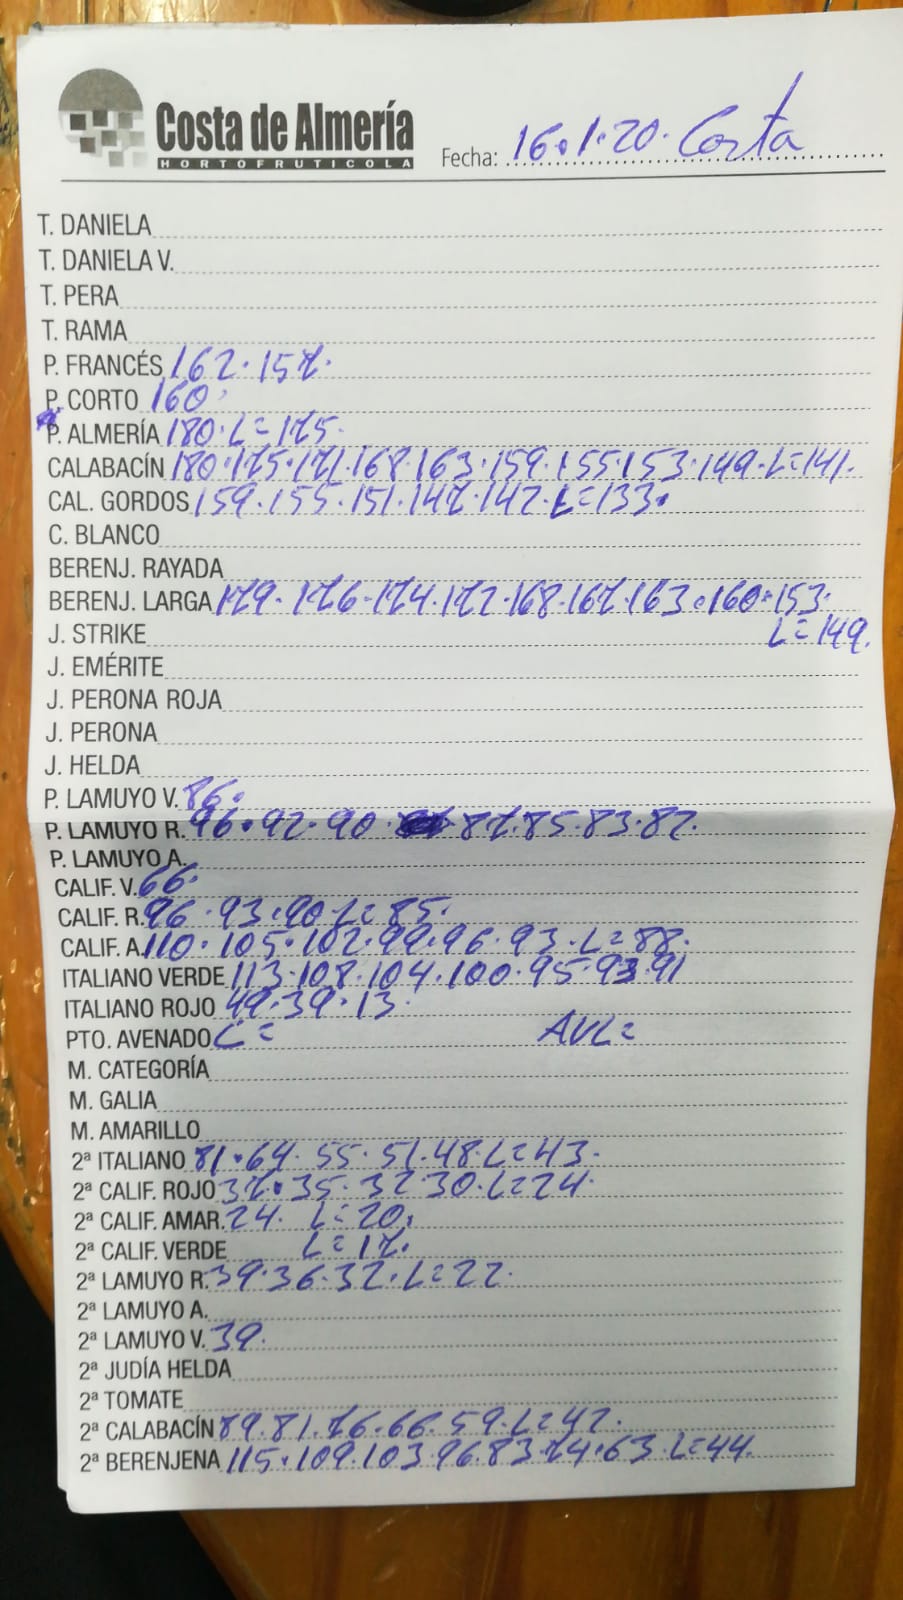 Costa de Almería
HORTOFRUTICOLA
Fecha: 16.1.20. Costa
T. DANIELA
T. DANIELA V.
T. PERA
T. RAMA
P. FRANCÉS 162.157.
P. CORTO 160.
P. ALMERÍA 180.L=175.
CALABACÍN 180.175.171.168.163.159.155.153.149.L=141.
CAL. GORDOS 159.155.151.147.142.L=133.
C. BLANCO
BERENJ. RAYADA
BERENJ. LARGA 179.176.174.172.168.167.163.160.153.
L=149.
J. STRIKE
J. EMÉRITE
J. PERONA ROJA
J. PERONA
J. HELDA
P. LAMUYO V. 86.
P. LAMUYO R. 96.92.90. 87.85.83.82.
P. LAMUYO A.
CALIF. V. 66.
CALIF. R. 96.93.90.L=85.
CALIF. A. 110.105.102.99.96.93.L=88.
ITALIANO VERDE 113.108.104.100.95.93.91
ITALIANO ROJO 49.39.13.
PTO. AVENADO C= AVL=
M. CATEGORÍA
M. GALIA
M. AMARILLO
2ª ITALIANO 81.64.55.51.48.L=43.
2ª CALIF. ROJO 37.35.32 30.L=24.
2ª CALIF. AMAR. 24. L=20.
2ª CALIF. VERDE L=17.
2ª LAMUYO R. 39.36.32.L=22.
2ª LAMUYO A.
2ª LAMUYO V. 39.
2ª JUDÍA HELDA
2ª TOMATE
2ª CALABACÍN 89.81.76.66.59.L=42.
2ª BERENJENA 115.109.103 96.83.74.63.L=44.